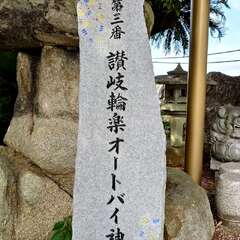 第三番 讃岐輪楽オートバイ神